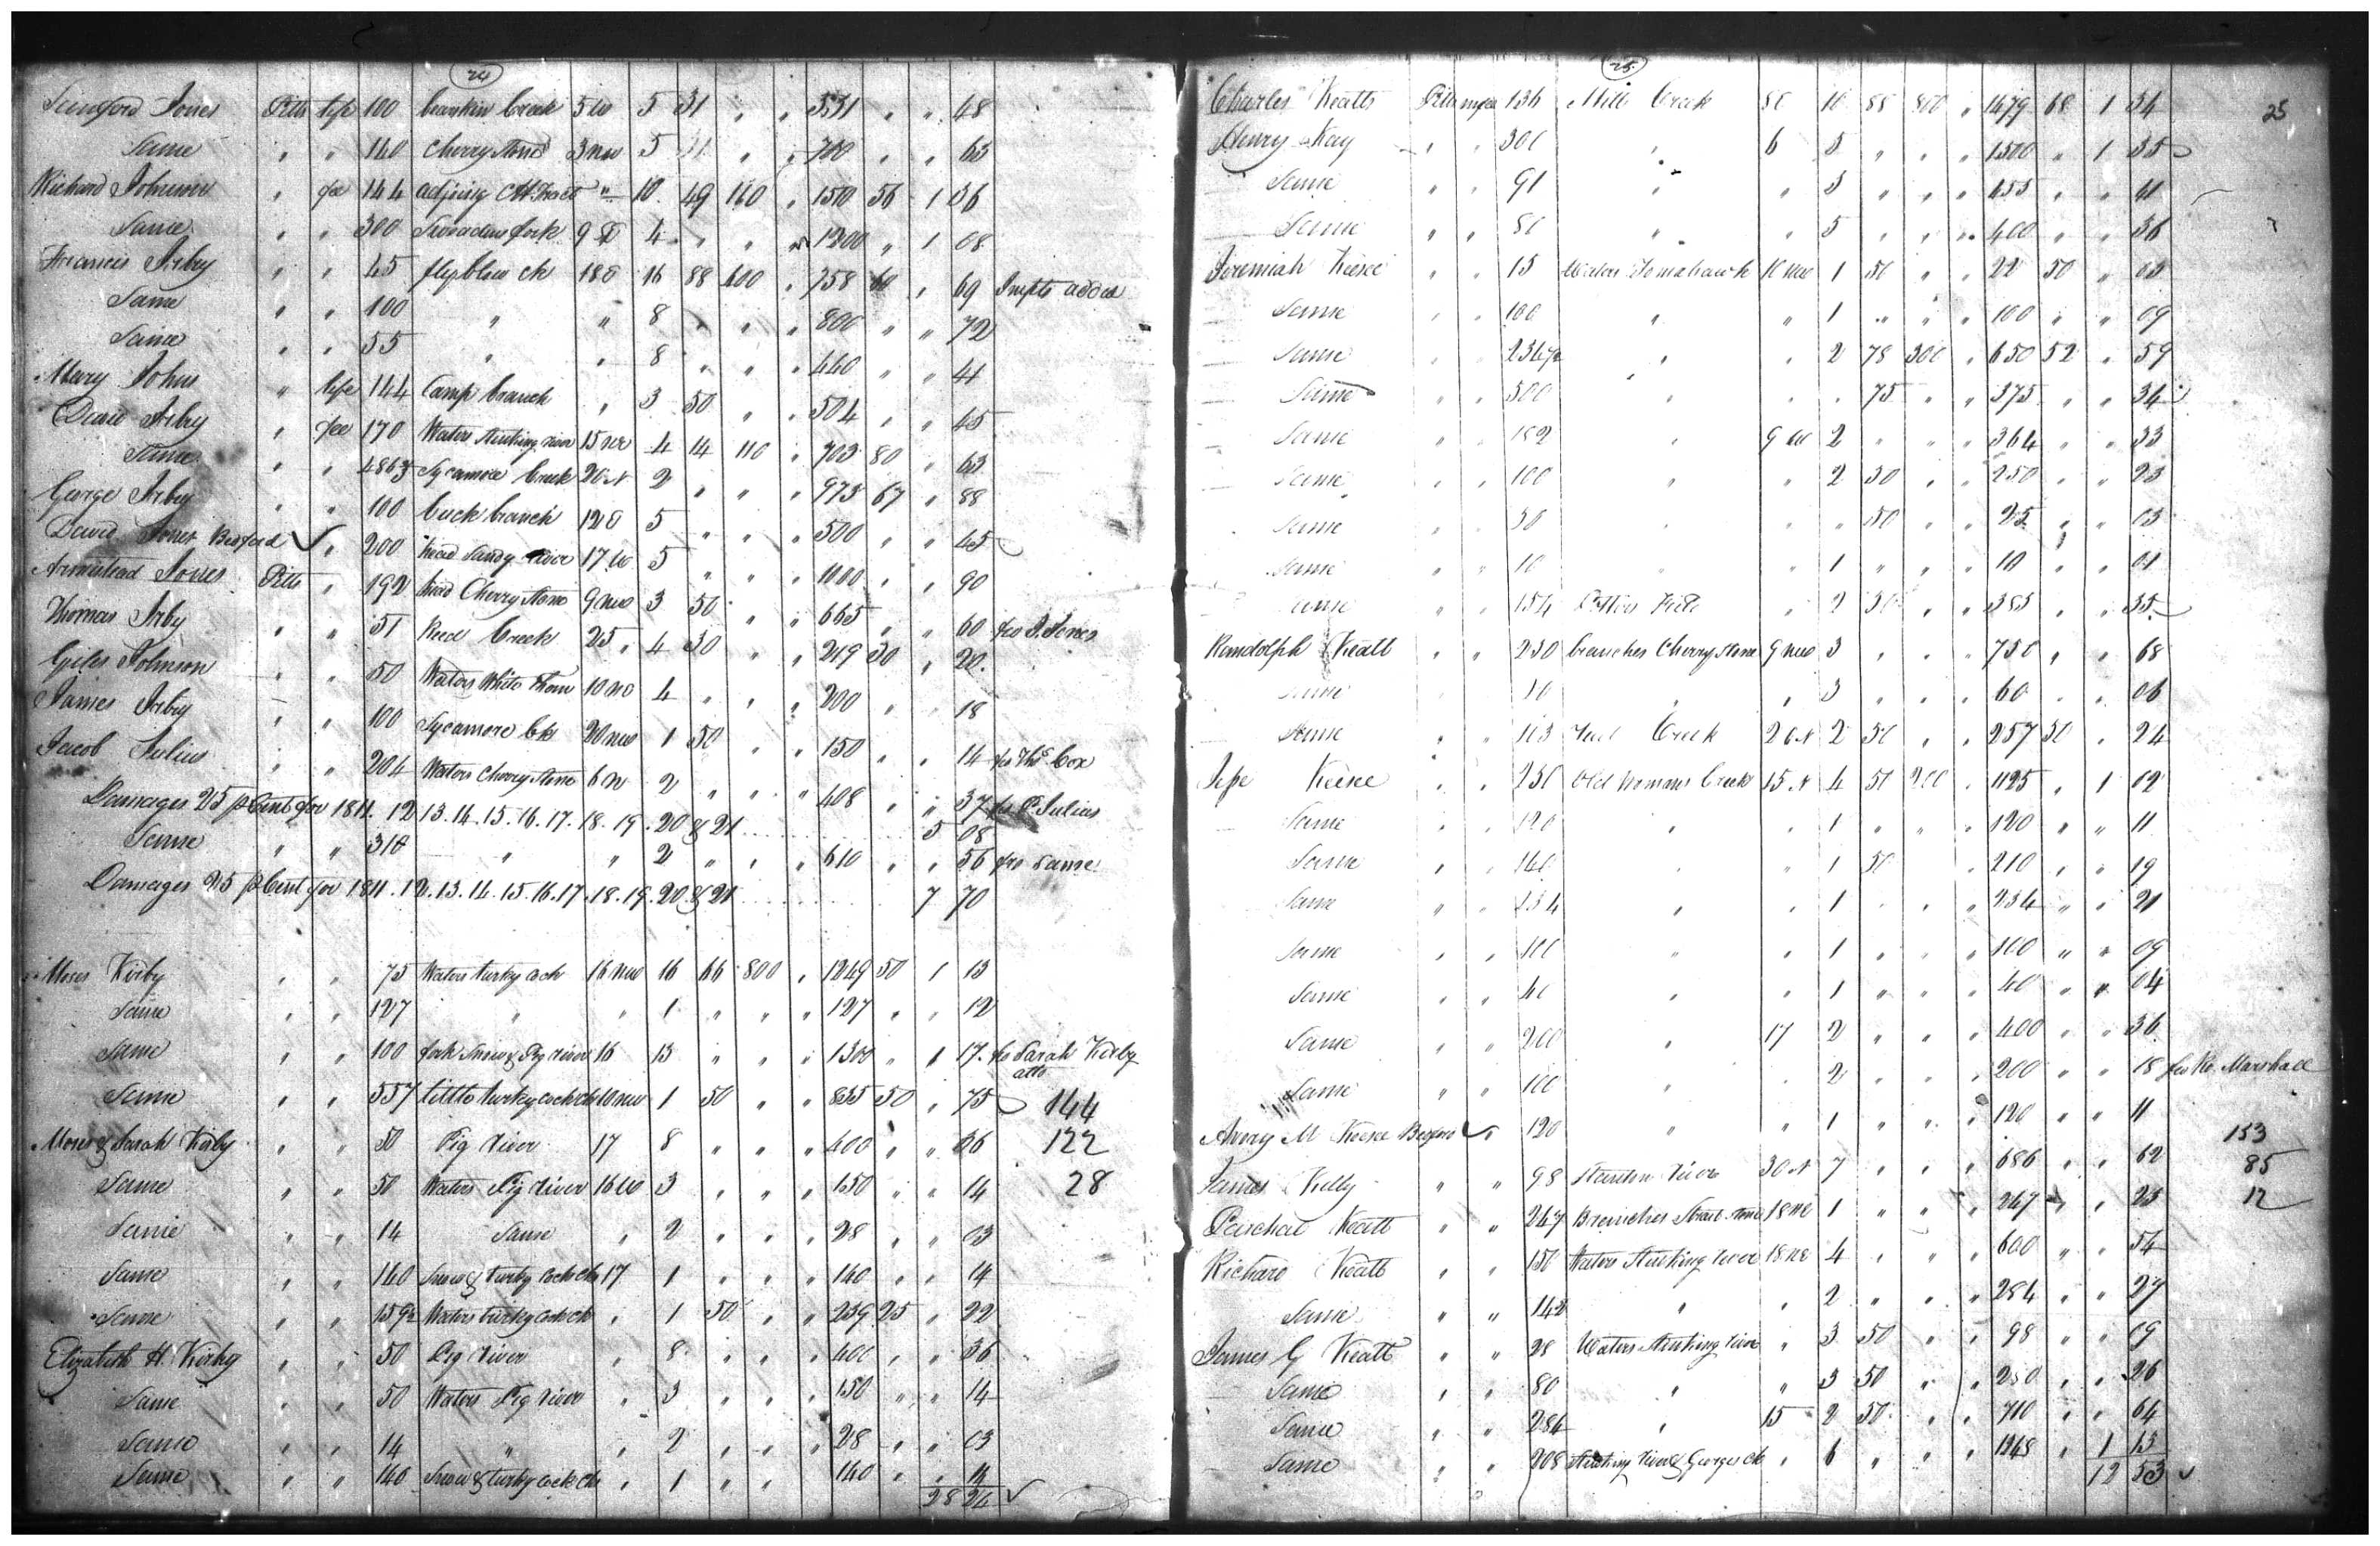 24
Sanford Jones Pitts life 100 bearskin Creek 5 W 5 31 " " 531 " " 48
Same " " 140 Cherrystone 3 NW 5 " " 700 " " 63
Richard Johnson " fee 144 adjoing CH Tract " 10 49 160 " 1510 56 1 36
Same " " 300 fork 9 4 " " " 1200 " 1 08
Francis Irby " " 45 flyblow ck 18 E 16 88 600 " 758 60 " 69 Impts added
Same " " 100 " " 8 " " " 800 " " 72
Same " " 55 " " 8 " " " 440 " " 41
Mary Johns " life 144 Camp branch " 3 50 " " 504 " " 45
David Irby " fee 170 Waters Stinking river 15 NE 4 14 110 " 703 80 " 63
Same " " Sycamore Creek 20 N 2 " " " 973 67 " 88
George Irby " " 100 buck branch 12 E 5 " " " 500 " " 45
David Jones Bedford " 200 head Sandy river 17 W 5 " " " 1000 " " 90
Armistead Jones Pitts " 192 head Cherrystone 9 NW 3 50 " " 665 " " 60 fro J. Jones
Thomas Irby " " 51 Reed Creek 25 " 4 30 " " 219 30 " 20
Giles Johnson " " 50 Waters White thorn 10 NE 4 " " " 200 " " 18
James Irby " " 100 Sycamore Ck 20 NW 1 50 " " 150 " " 14 fro Thos Cox
Jacob Julius " " 204 Waters Cherrystone 6 N 2 " " " 408 " " 37 fro P. Julius
Damages 25 p Cent for 1811. 12 13. 14. 15. 16. 17. 18. 19. 20 & 21 5 08
Same " " 310 " " 2 " " " 610 " " 56 fro same
Damages 25 p Cent for 1811. 12. 13. 14. 15. 16. 17. 18. 19. 20 & 21 7 70
Moses Kirby " " 75 Waters turky cock 16 NW 16 66 800 " 1249 50 1 13
Same " " 127 " " 1 " " " 127 " " 12
Same " " 100 fork Snow & Pig river 16 13 " " " 1300 " 1 17 fro Sarah Kirby
Same " " 557 little turky cock ck 10 NW 1 50 " " 835 50 " 75 144
Moses & Sarah Kirby " " 50 Pig river 17 8 " " " 400 " " 36 122
Same " " 50 Waters Pig river 16 W 3 " " " 150 " " 14 28
Same " " 14 Same " 2 " " " 28 " " 03
Same " " 140 Snow & turky cock ck 17 1 " " " 140 " " 14
Same " " 159½ Waters turky cock ck " 1 50 " " 239 25 " 22
Elizabeth H. Kirby " " 50 Pig river " 8 " " " 400 " " 36
Same " " 50 Waters Pig river " 3 " " " 150 " " 14
Same " " 14 " " 2 " " " 28 " " 03
Same " " 140 Snow & turky cock ck " 1 " " " 140 " " 14
28 24
25
25
Charles Keatts 136 Mill Creek 8 E 10 88 800 " 1479 68 1 34
Henry Kay " " 300 " 6 5 " " " 1500 " 1 35
Same " " 91 " " 5 " " " 455 " " 41
Same " " 80 " " 5 " " " 400 " " 36
Jeremiah Keese " " 15 Waters Tomahawk 10 NW 1 50 " " 22 50 " 03
Same " " 100 " " 1 " " " 100 " " 09
Same " " 234½ " " 2 78 300 " 650 52 " 59
Same " " 500 " " " 75 " " 375 " " 34
Same " " 182 " 9 W 2 " " " 364 " " 33
Same " " 100 " " 2 50 " " 250 " " 23
Same " " 50 " " " 50 " " 25 " " 03
Same " " 10 " " 1 " " " 10 " " 01
Same " " 154 " 2 50 " " 385 " " 35
Randolph Keatt " " 250 branches Cherrystone 9 NW 3 " " " 750 " " 68
Same " " " 3 " " " 60 " " 06
Same " " 103 Creek 26 N 2 50 " " 257 50 " 24
Jesse Keese " " 250 Old womans Creek 15 N 4 50 200 " 1125 " 1 02
Same " " 120 " " 1 " " " 120 " " 11
Same " " 140 " " 1 50 " " 210 " " 19
Same " " 234 " " 1 " " " 234 " " 21
Same " " 100 " " 1 " " " 100 " " 09
Same " " 40 " " 1 " " " 40 " " 04
Same " " 200 " 17 2 " " " 400 " " 36
Same " " 100 " " 2 " " " 200 " " 18 fro Ro. Marshall
Avory M Keese Bedford " 120 " " 1 " " " 120 " " 11 153
James Kelly " " 98 Staunton river 30 N 7 " " " 686 " " 62 85
Paschal Keatt " " 247 Branches Straitstone 18 NE 1 " " " 247 " " 23 12
Richard Keatt " " 150 Waters Stinking river 18 NE 4 " " " 600 " " 54
Same " " 142 " " 2 " " " 284 " " 27
James G Keatt " " 28 Waters Stinking river " 3 50 " " 98 " " 09
Same " " 80 " " 3 50 " " 280 " " 26
Same " " 284 " 15 2 50 " " 710 " " 64
Same " " 208 Stinking river & Georges ck " 6 " " " 1248 " 1 13
12 53